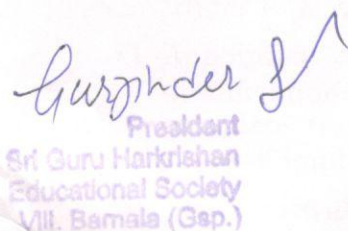 Gurpinder S
President
Sri Guru Harkrishan
Educational Society
Vill. Barnala (Gsp.)